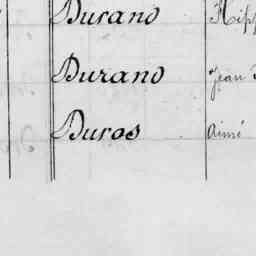 Durand Hipp
Durand Jean
Duros Aimé